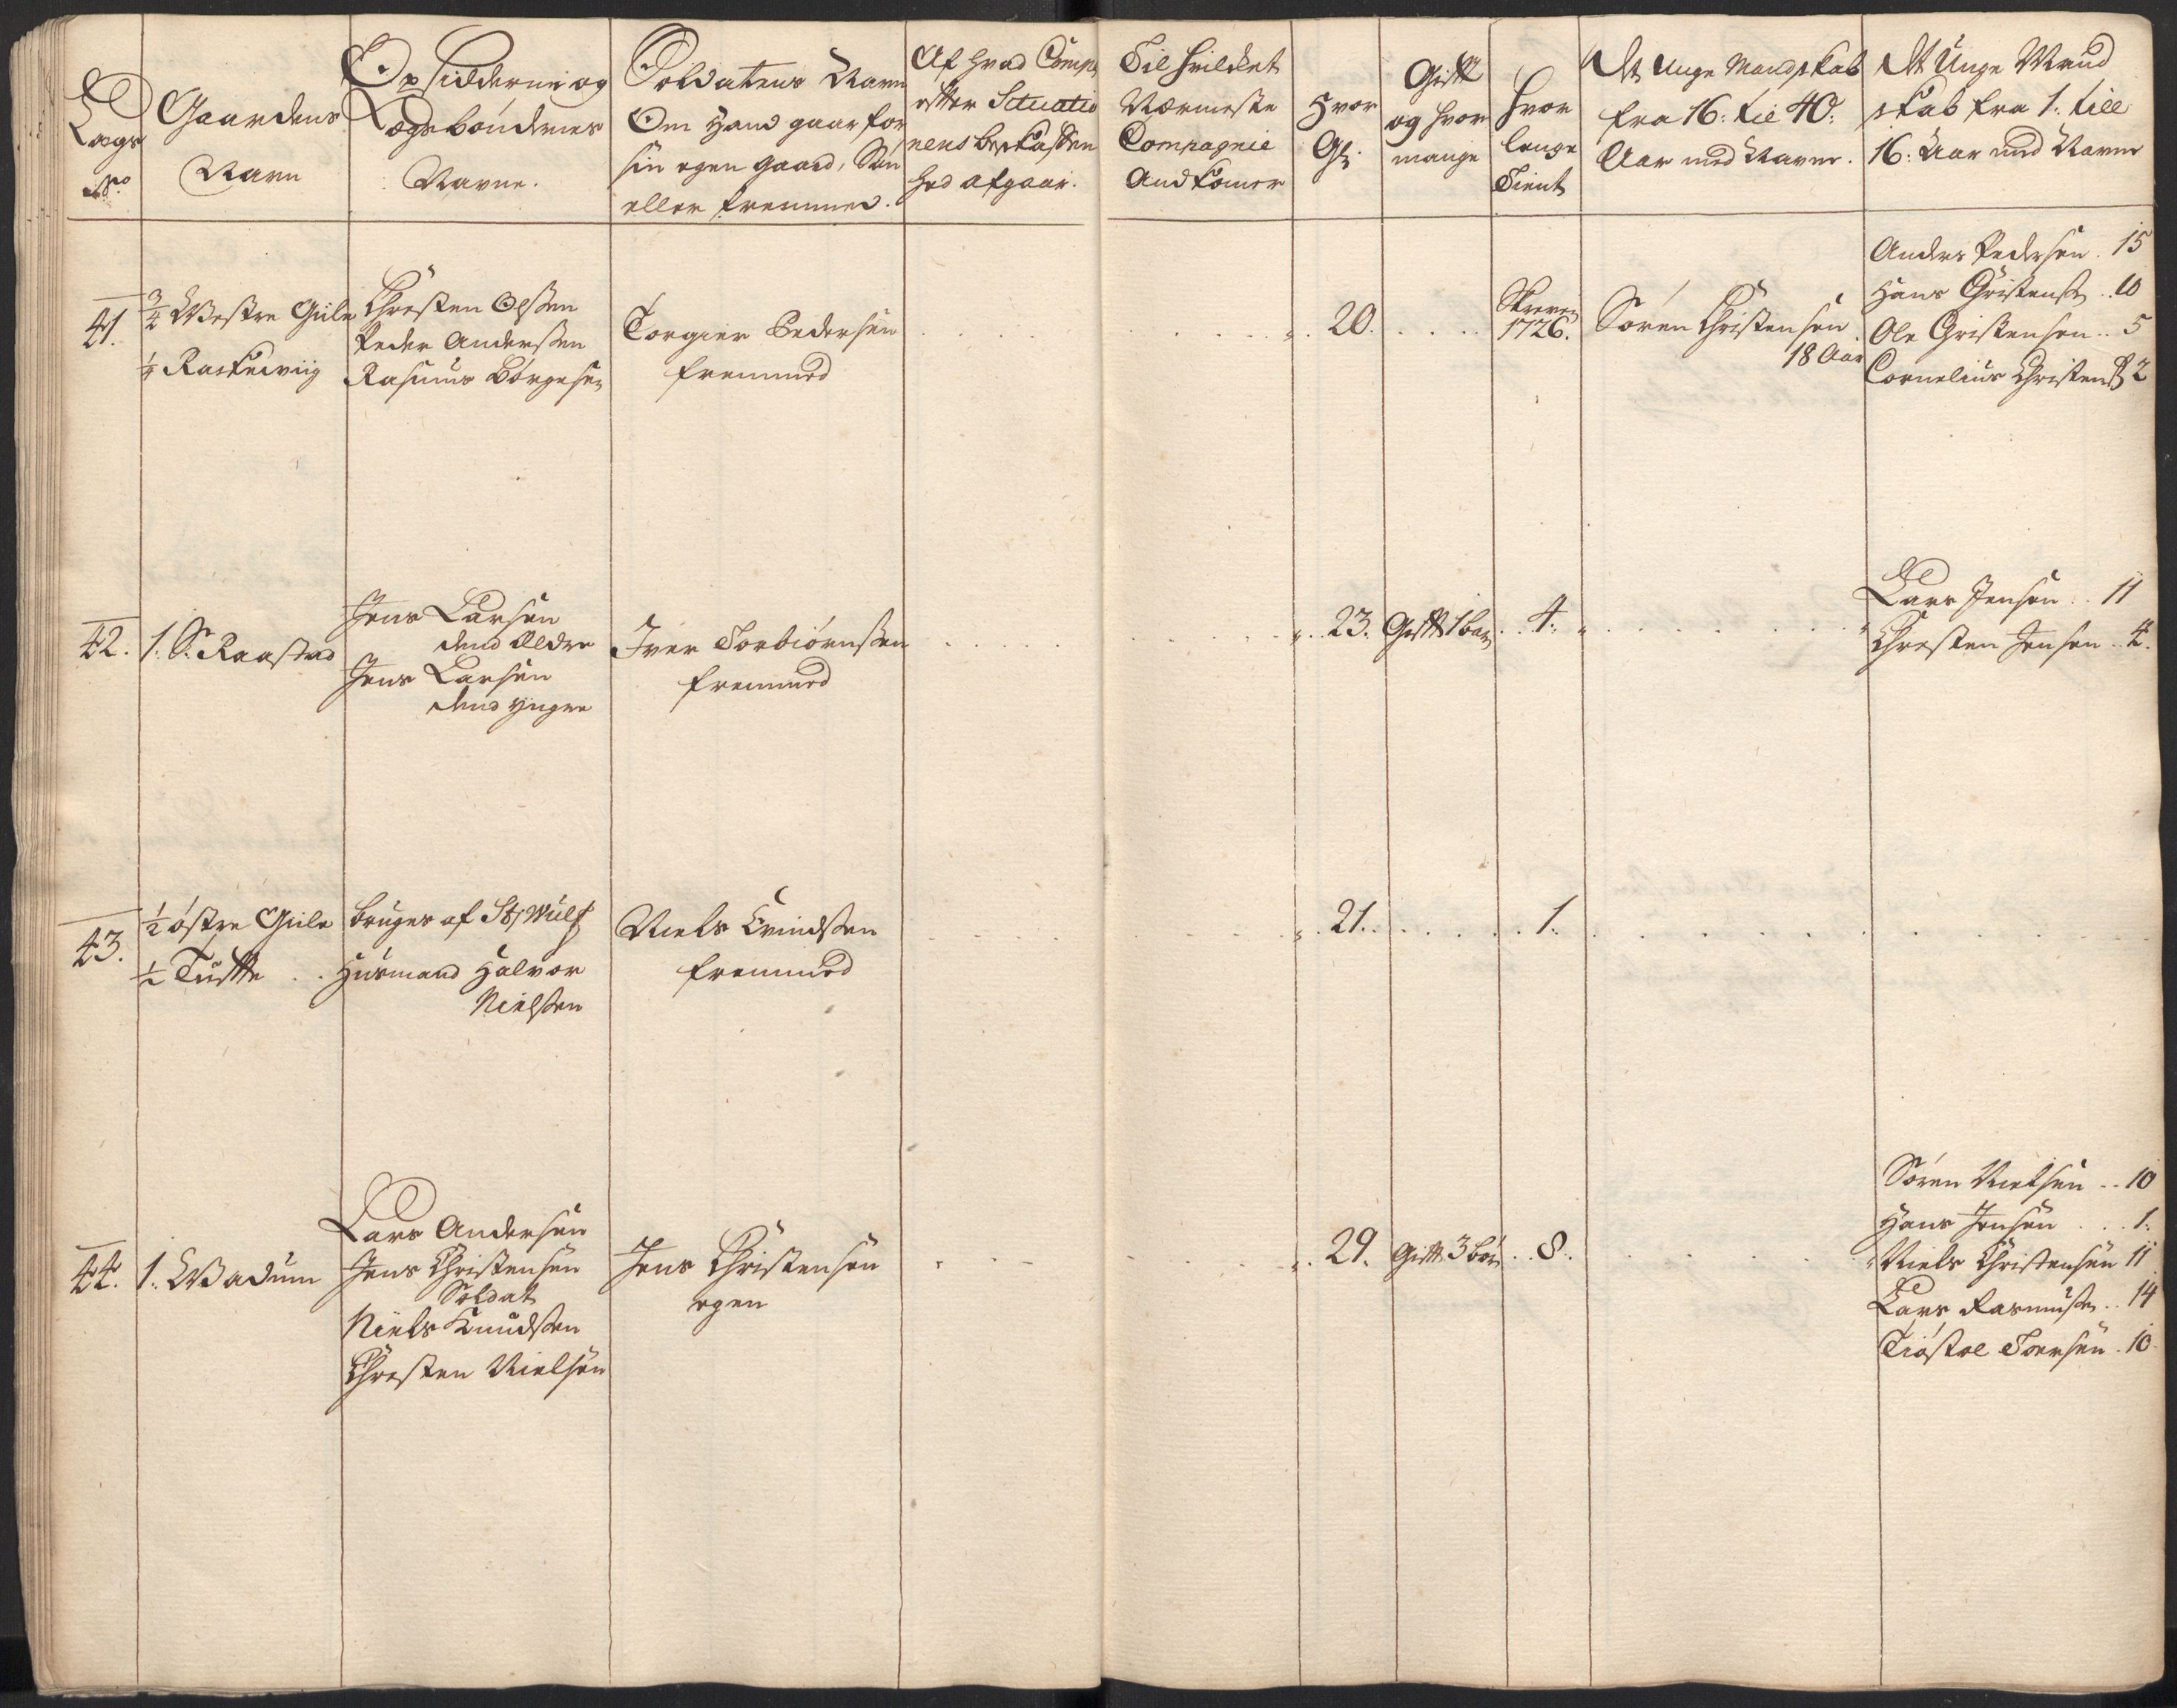 Lægs
No.
Gaardens
Navn
Opsidderne og
Lægsbøndernes
Navne.
Soldatens Navn
Om Hand gaar for
sin egen gaard, Søn
eller fremmed.
Af hvad Comp
efter Situatio
nens beskaffen
hed afgaar.
Til hvilchet
Nærmeste
Compagnie
And komer
Hvor
Gl:
Gifft
og hvor
mange
hvor
lenge
Tient
Det unge Mandskab
fra 16. til 40.
Aar med Navne.
Det Unge Mand
skab fra 1. till
16. Aar med Navne
41.
3/4 Westre Giile
1/4 Raskelwiig
Christen Olssen
Peder Anderssen
Rasmus Børgesen
Torgier Pedersen
fremmed
20.
Skreven
1726.
Søren Christensen
18 Aar
Anders Pedersen . 15
Hans Christens . 10
Ole Christensen .. 5
Cornelius Christens 2
42.
1. S. Raastad
Jens Larsen
dend Eldre
Jens Larsen
dend yngre
Iver Torbiørnssen
fremmed
23. Gifft 1 bar . 4.
Lars Jensen .. 11
Christen Jensen .. 4.
43.
1/2 østre Giile
1/2 Tuftte
bruges af St: Wulf
Husmand Halvor
Nielssen
Niels Evindssen
fremmed
21. 1.
44.
1. Wadum
Lars Andersen
Jens Christensen
Soldat
Niels Knudssen
Christen Nielsen
Jens Christensen
egen
29. Gifft 3 bør . 8.
Søren Nielsen .. 10
Hans Jensen . . . 1.
Niels Christensen 11
Lars Rasmuss .. 14
Tiøstel Iversen . 10